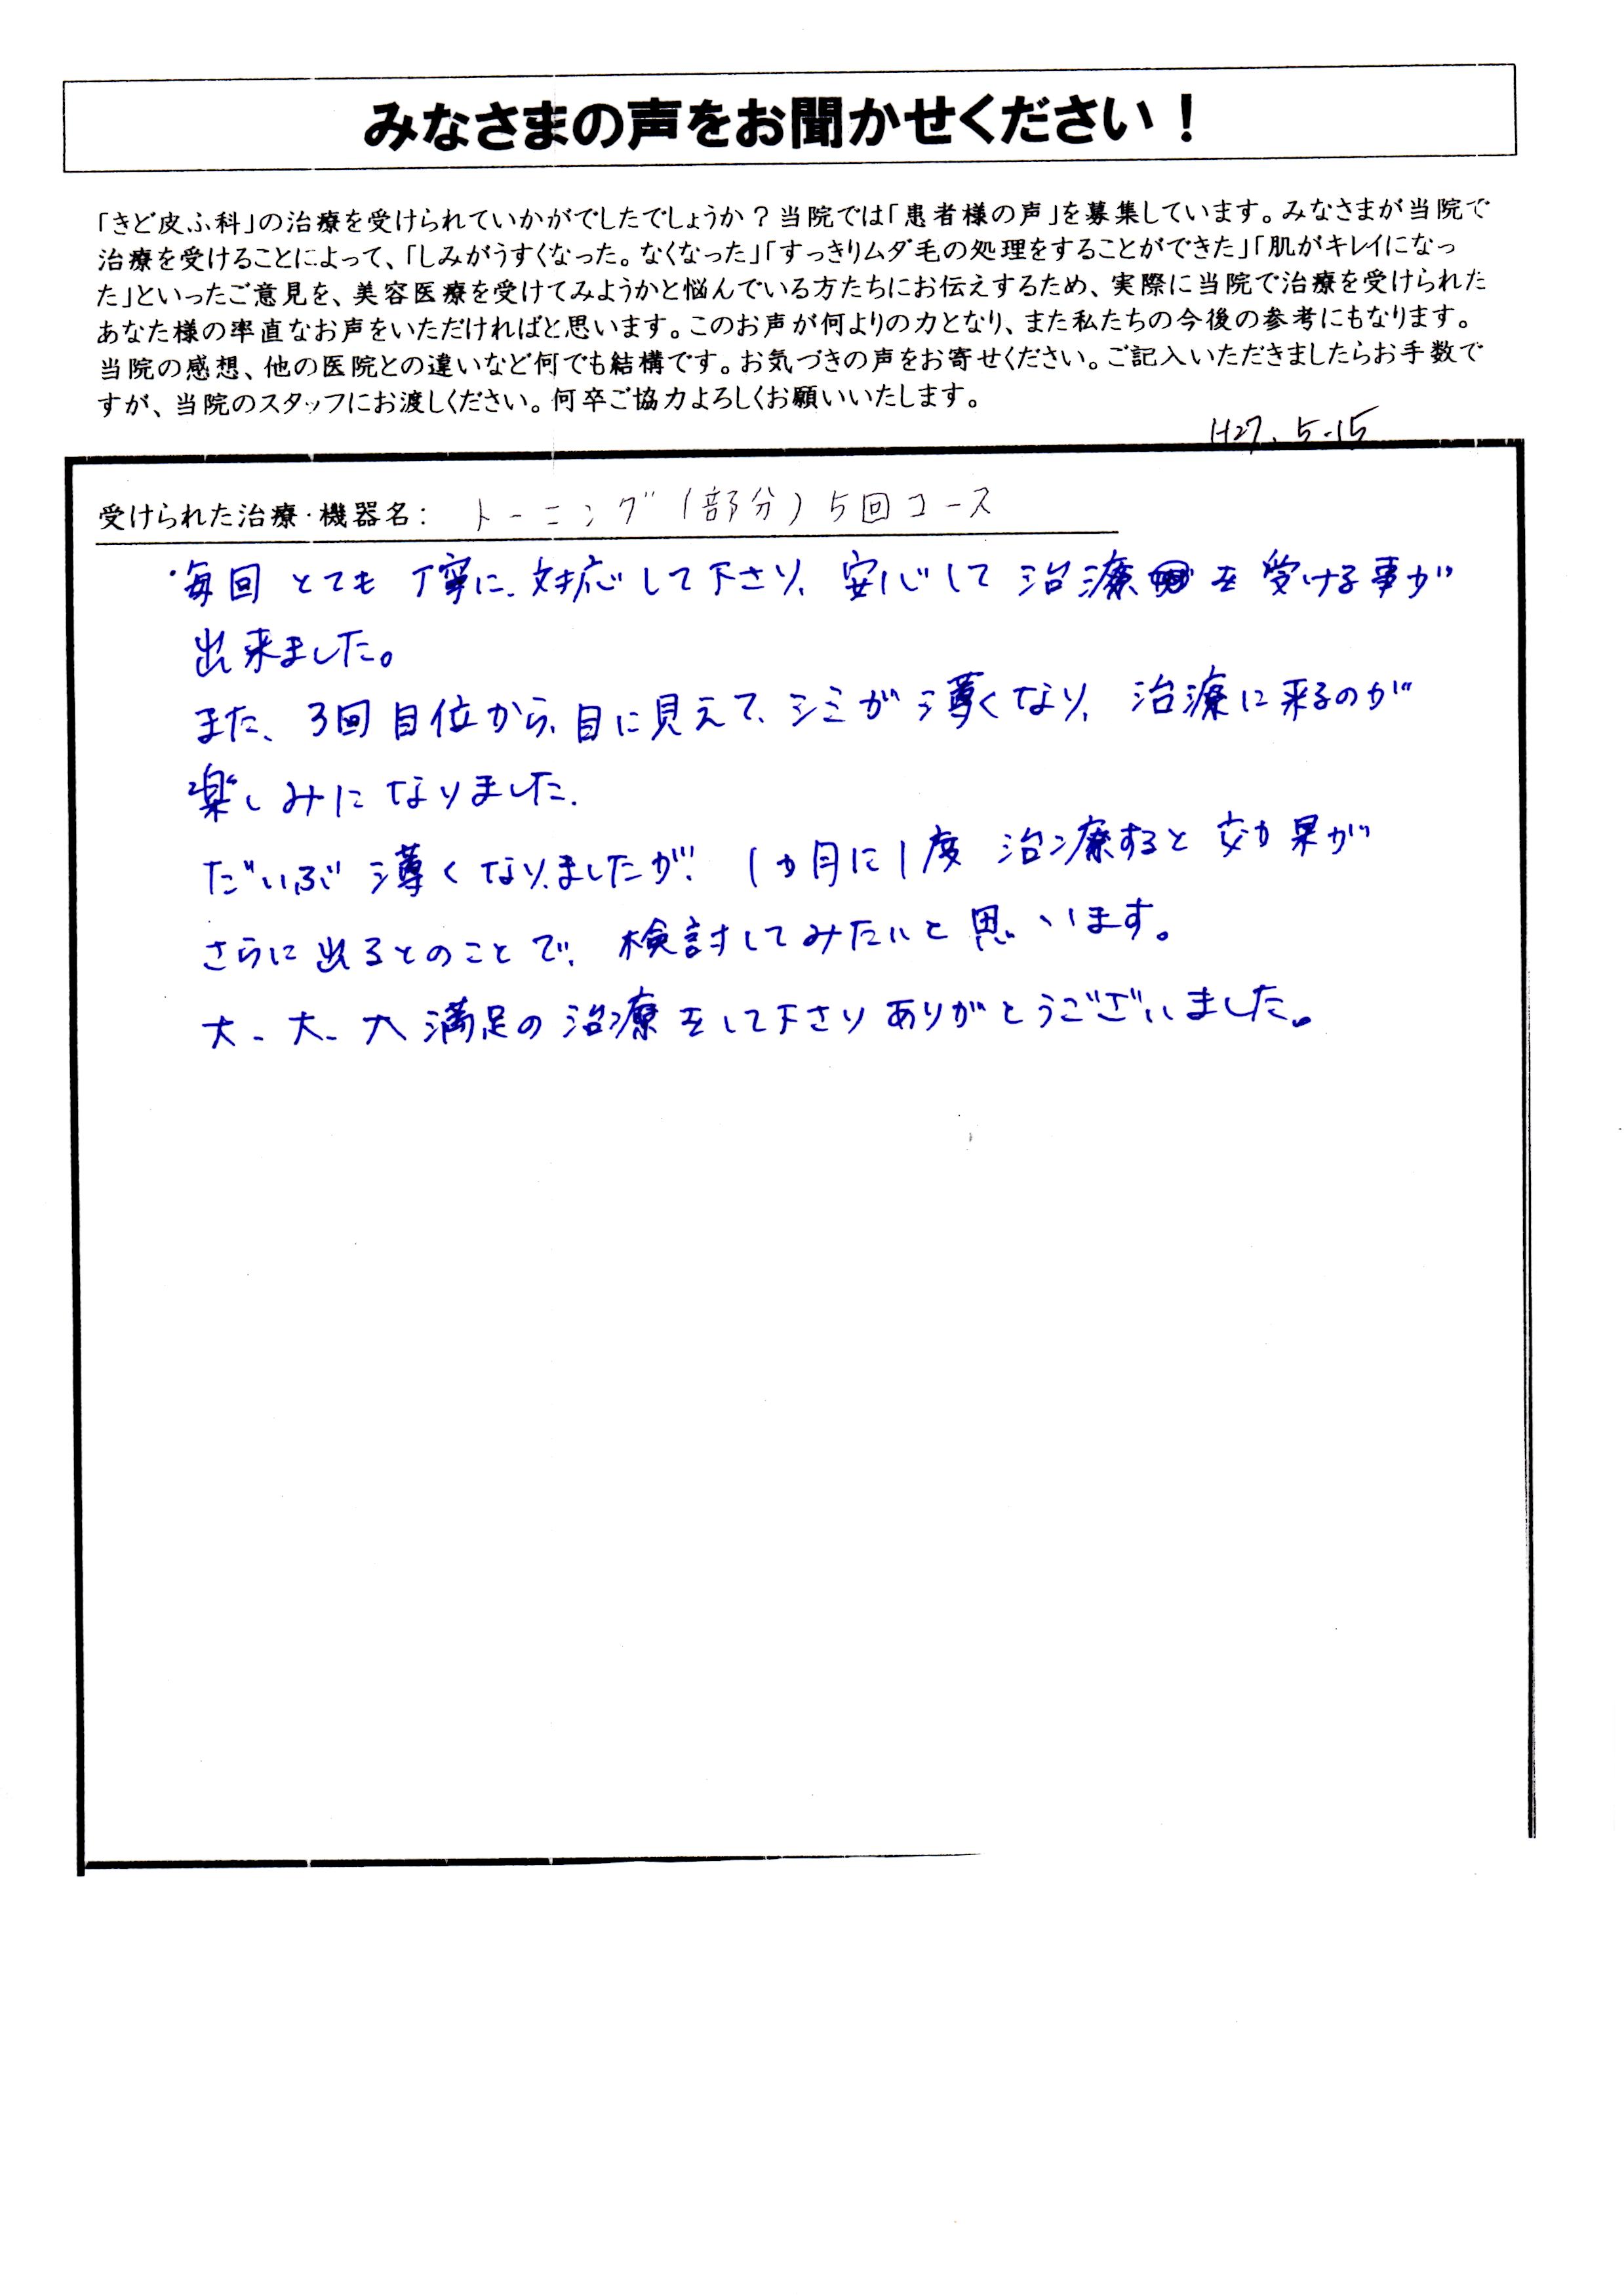 みなさまの声をお聞かせください！
「きど皮ふ科」の治療を受けられていかがでしたでしょうか？当院では「患者様の声」を募集しています。みなさまが当院で
治療を受けることによって、「しみがうすくなった。なくなった」「すっきりムダ毛の処理をすることができた」「肌がキレイになっ
た」といったご意見を、美容医療を受けてみようかと悩んでいる方たちにお伝えするため、実際に当院で治療を受けられた
あなた様の率直なお声をいただければと思います。このお声が何よりの力となり、また私たちの今後の参考にもなります。
当院の感想、他の医院との違いなど何でも結構です。お気づきの声をお寄せください。ご記入いただきましたらお手数で
すが、当院のスタッフにお渡しください。何卒ご協力よろしくお願いいたします。
H27. 5.15
受けられた治療・機器名： トーニング(部分) 5回コース
・毎回 とても 丁寧に、対応して下さり、安心して 治療を 受ける事が
出来ました。
また、3回目位から、目に見えて、シミが薄くなり、治療に来るのが
楽しみに なりました.
だいぶ 薄く なりましたが、1ヵ月に1度 治療すると 効果が
さらに出るとのことで、検討してみたいと思います。
大、大、大満足の治療をして下さりありがとうございました。